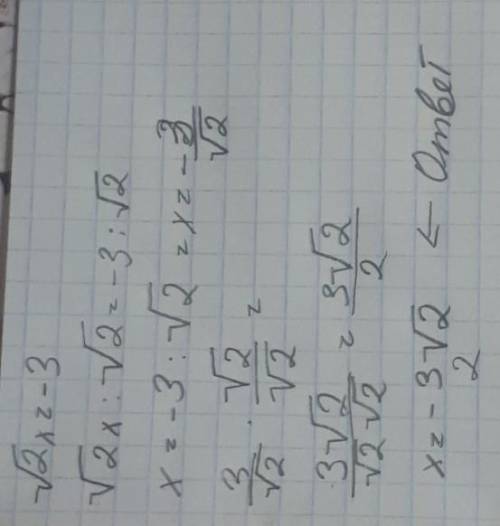 √2x=-3
√2x:√2=-3:√2
x=-3:√2=x=-3/√2
3/√2·√2/√2=
3√2/√2√2=3√2/2
x=-3√2/2 ← Ответ